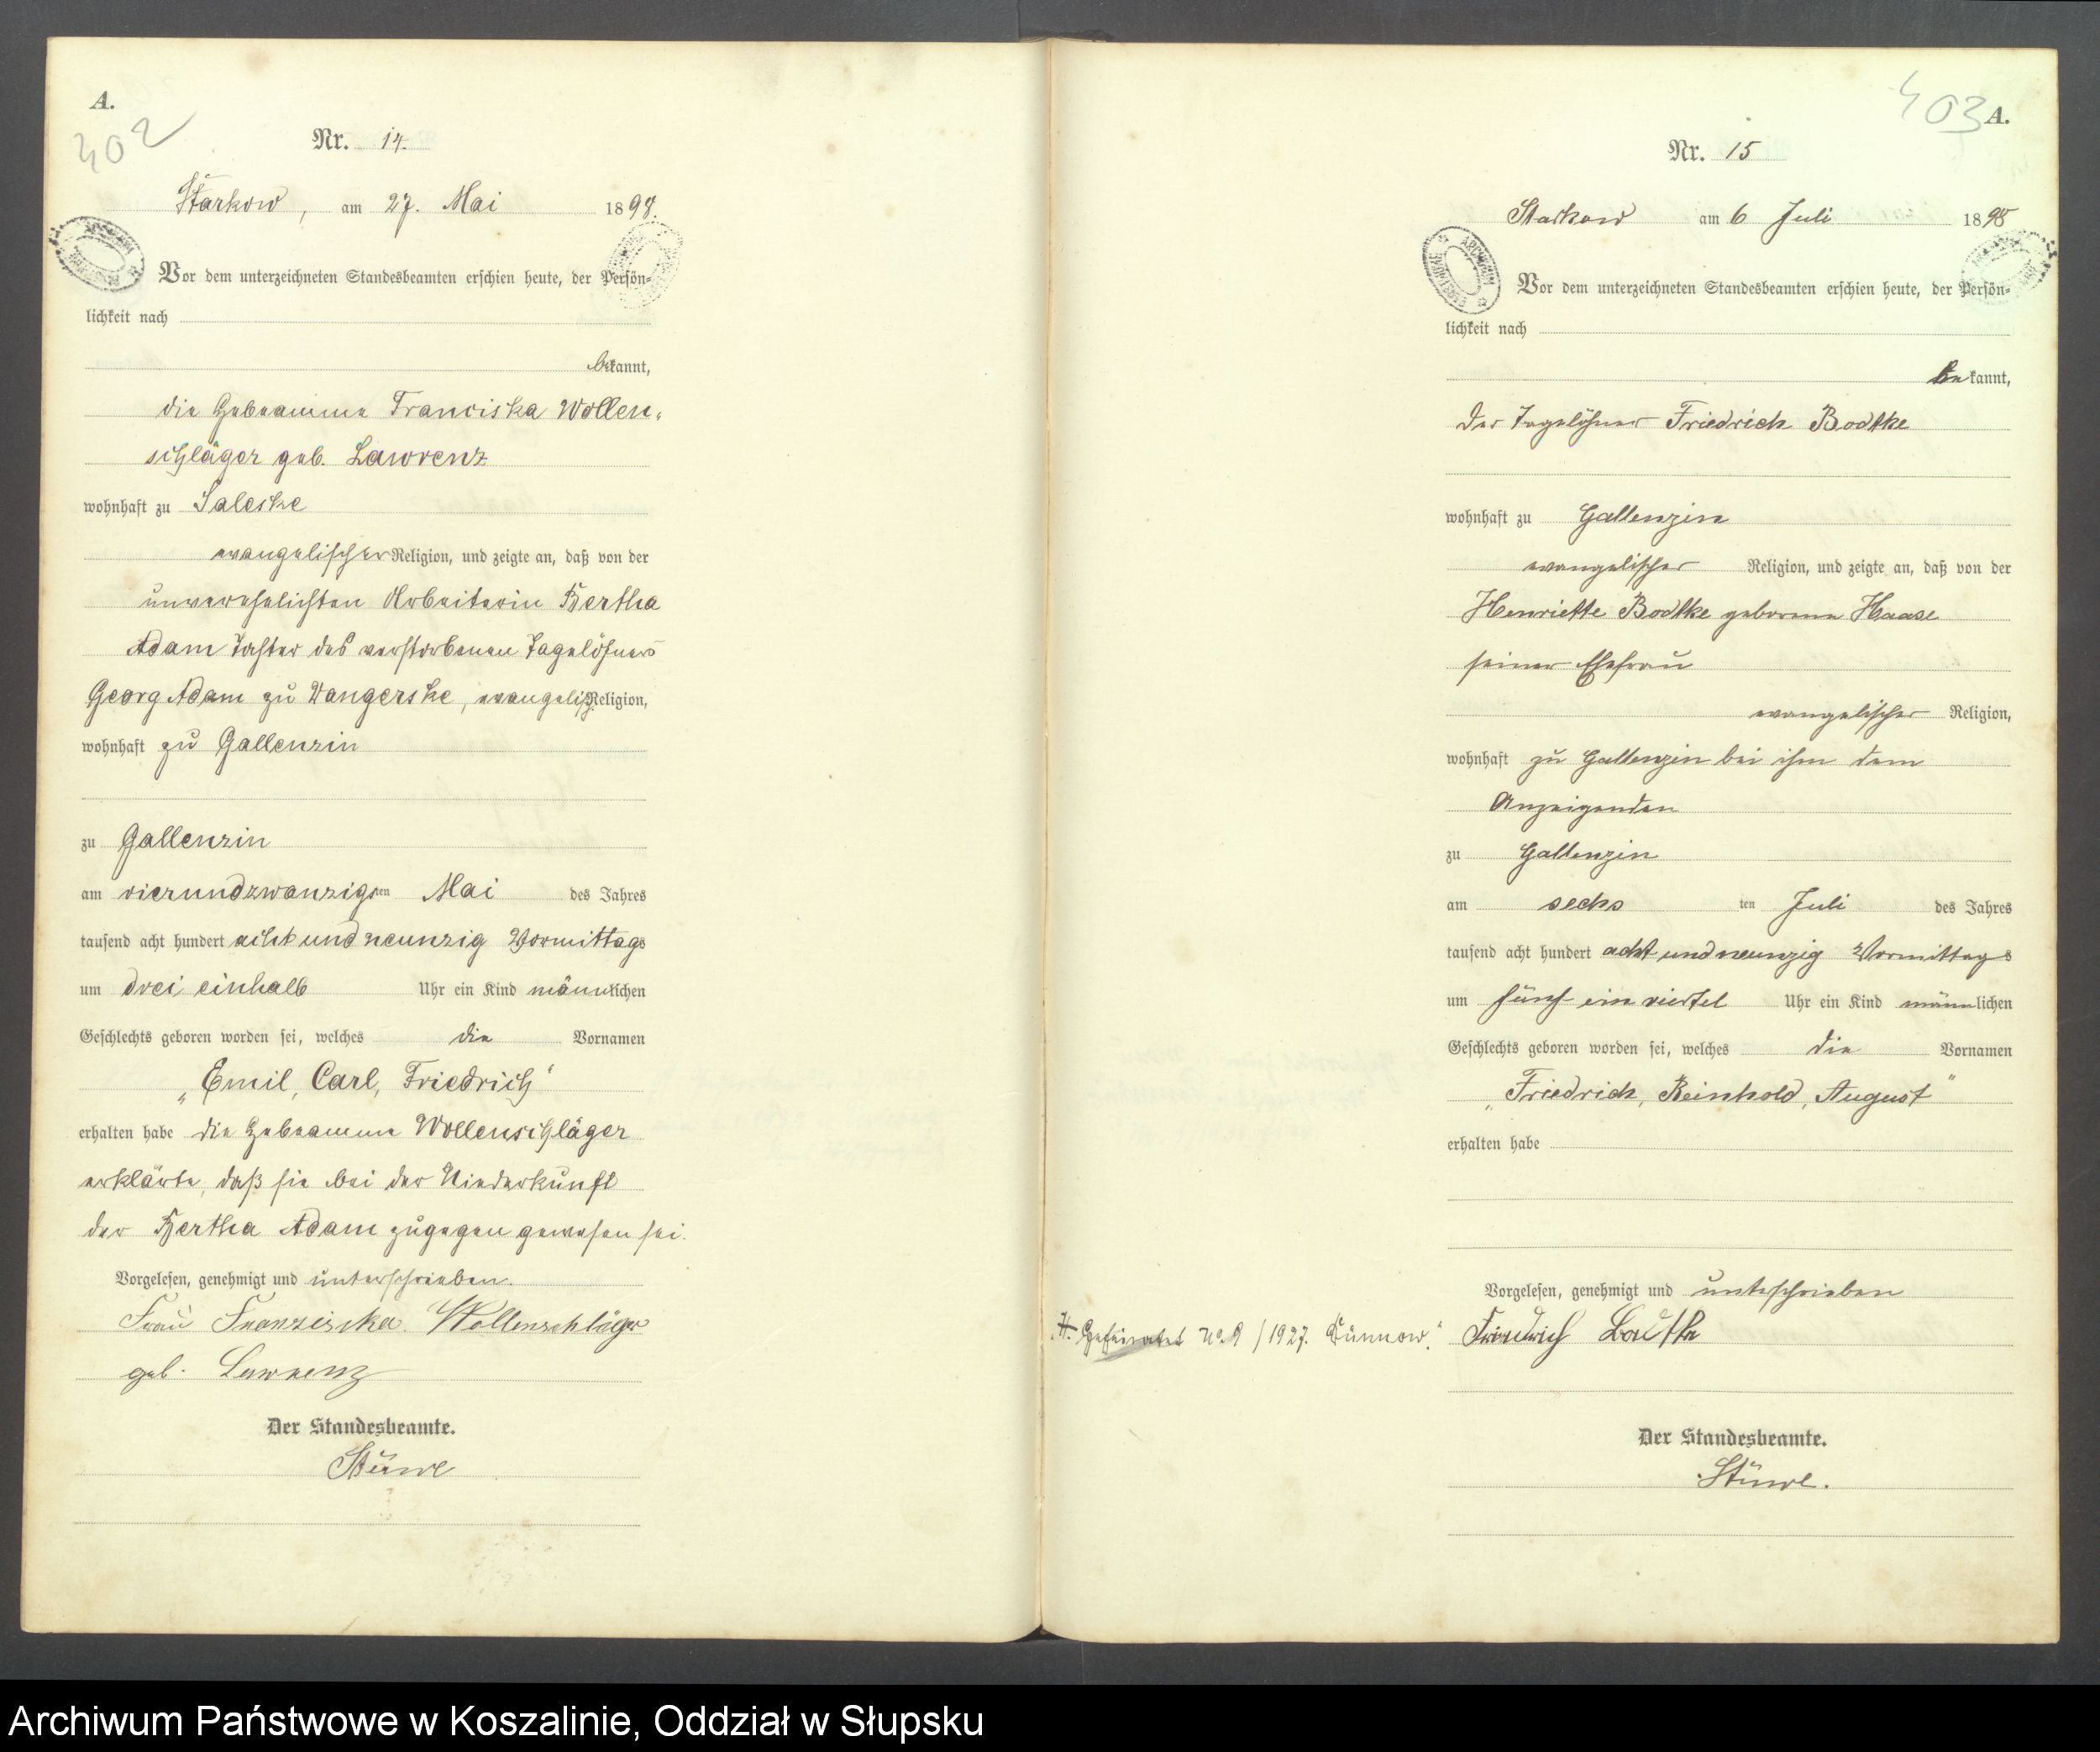 A.
402
Nr. 14.
Starkow, am 27. Mai 1898.
Vor dem unterzeichneten Standesbeamten erschien heute, der Persön-
lichkeit nach
bekannt,
die Hebeamme Franciska Wollen-
schläger geb. Lawrenz
wohnhaft zu Saleske
evangelischer Religion, und zeigte an, daß von der
unverehelichten Arbeiterin Hertha
Adam Tochter des verstorbenen Tagelöhners
Georg Adam zu Wangerske, evangelisch Religion,
wohnhaft zu Gallenzin
zu Gallenzin
am vierundzwanzigsten Mai des Jahres
tausend acht hundert acht und neunzig Vormittags
um drei einhalb Uhr ein Kind männlichen
Geschlechts geboren worden sei, welches die Vornamen
„Emil, Carl, Friedrich“
erhalten habe die Hebeamme Wollenschläger
erklärte, daß sie bei der Niederkunft
der Hertha Adam zugegen gewesen sei.
Vorgelesen, genehmigt und unterschrieben.
Frau Franziska Wollenschläger
geb. Lawrenz
Der Standesbeamte.
Stüwe
403
A.
Nr. 15
Starkow am 6 Juli 1898
Vor dem unterzeichneten Standesbeamten erschien heute, der Persön-
lichkeit nach
bekannt,
der Tagelöhner Friedrich Bodtke
wohnhaft zu Gallenzin
evangelischer Religion, und zeigte an, daß von der
Henriette Bodtke geborene Haase
seiner Ehefrau
evangelischer Religion,
wohnhaft zu Gallenzin bei ihm dem
Anzeigenden
zu Gallenzin
am sechsten Juli des Jahres
tausend acht hundert acht und neunzig Vormittags
um fünf ein viertel Uhr ein Kind männlichen
Geschlechts geboren worden sei, welches die Vornamen
„Friedrich, Reinhold, August“
erhalten habe
Vorgelesen, genehmigt und unterschrieben
Geheiratet No 9/1927. Dünnow. Friedrich Bodtke
Der Standesbeamte.
Stüwe.
Archiwum Państwowe w Koszalinie, Oddział w Słupsku